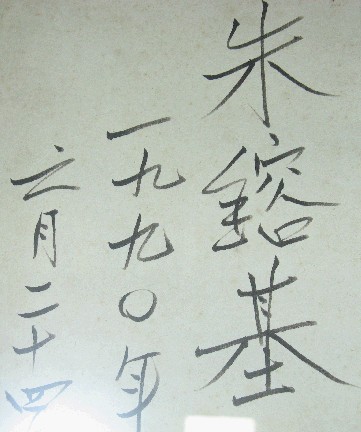 朱镕基
一九九〇年
六月二十四